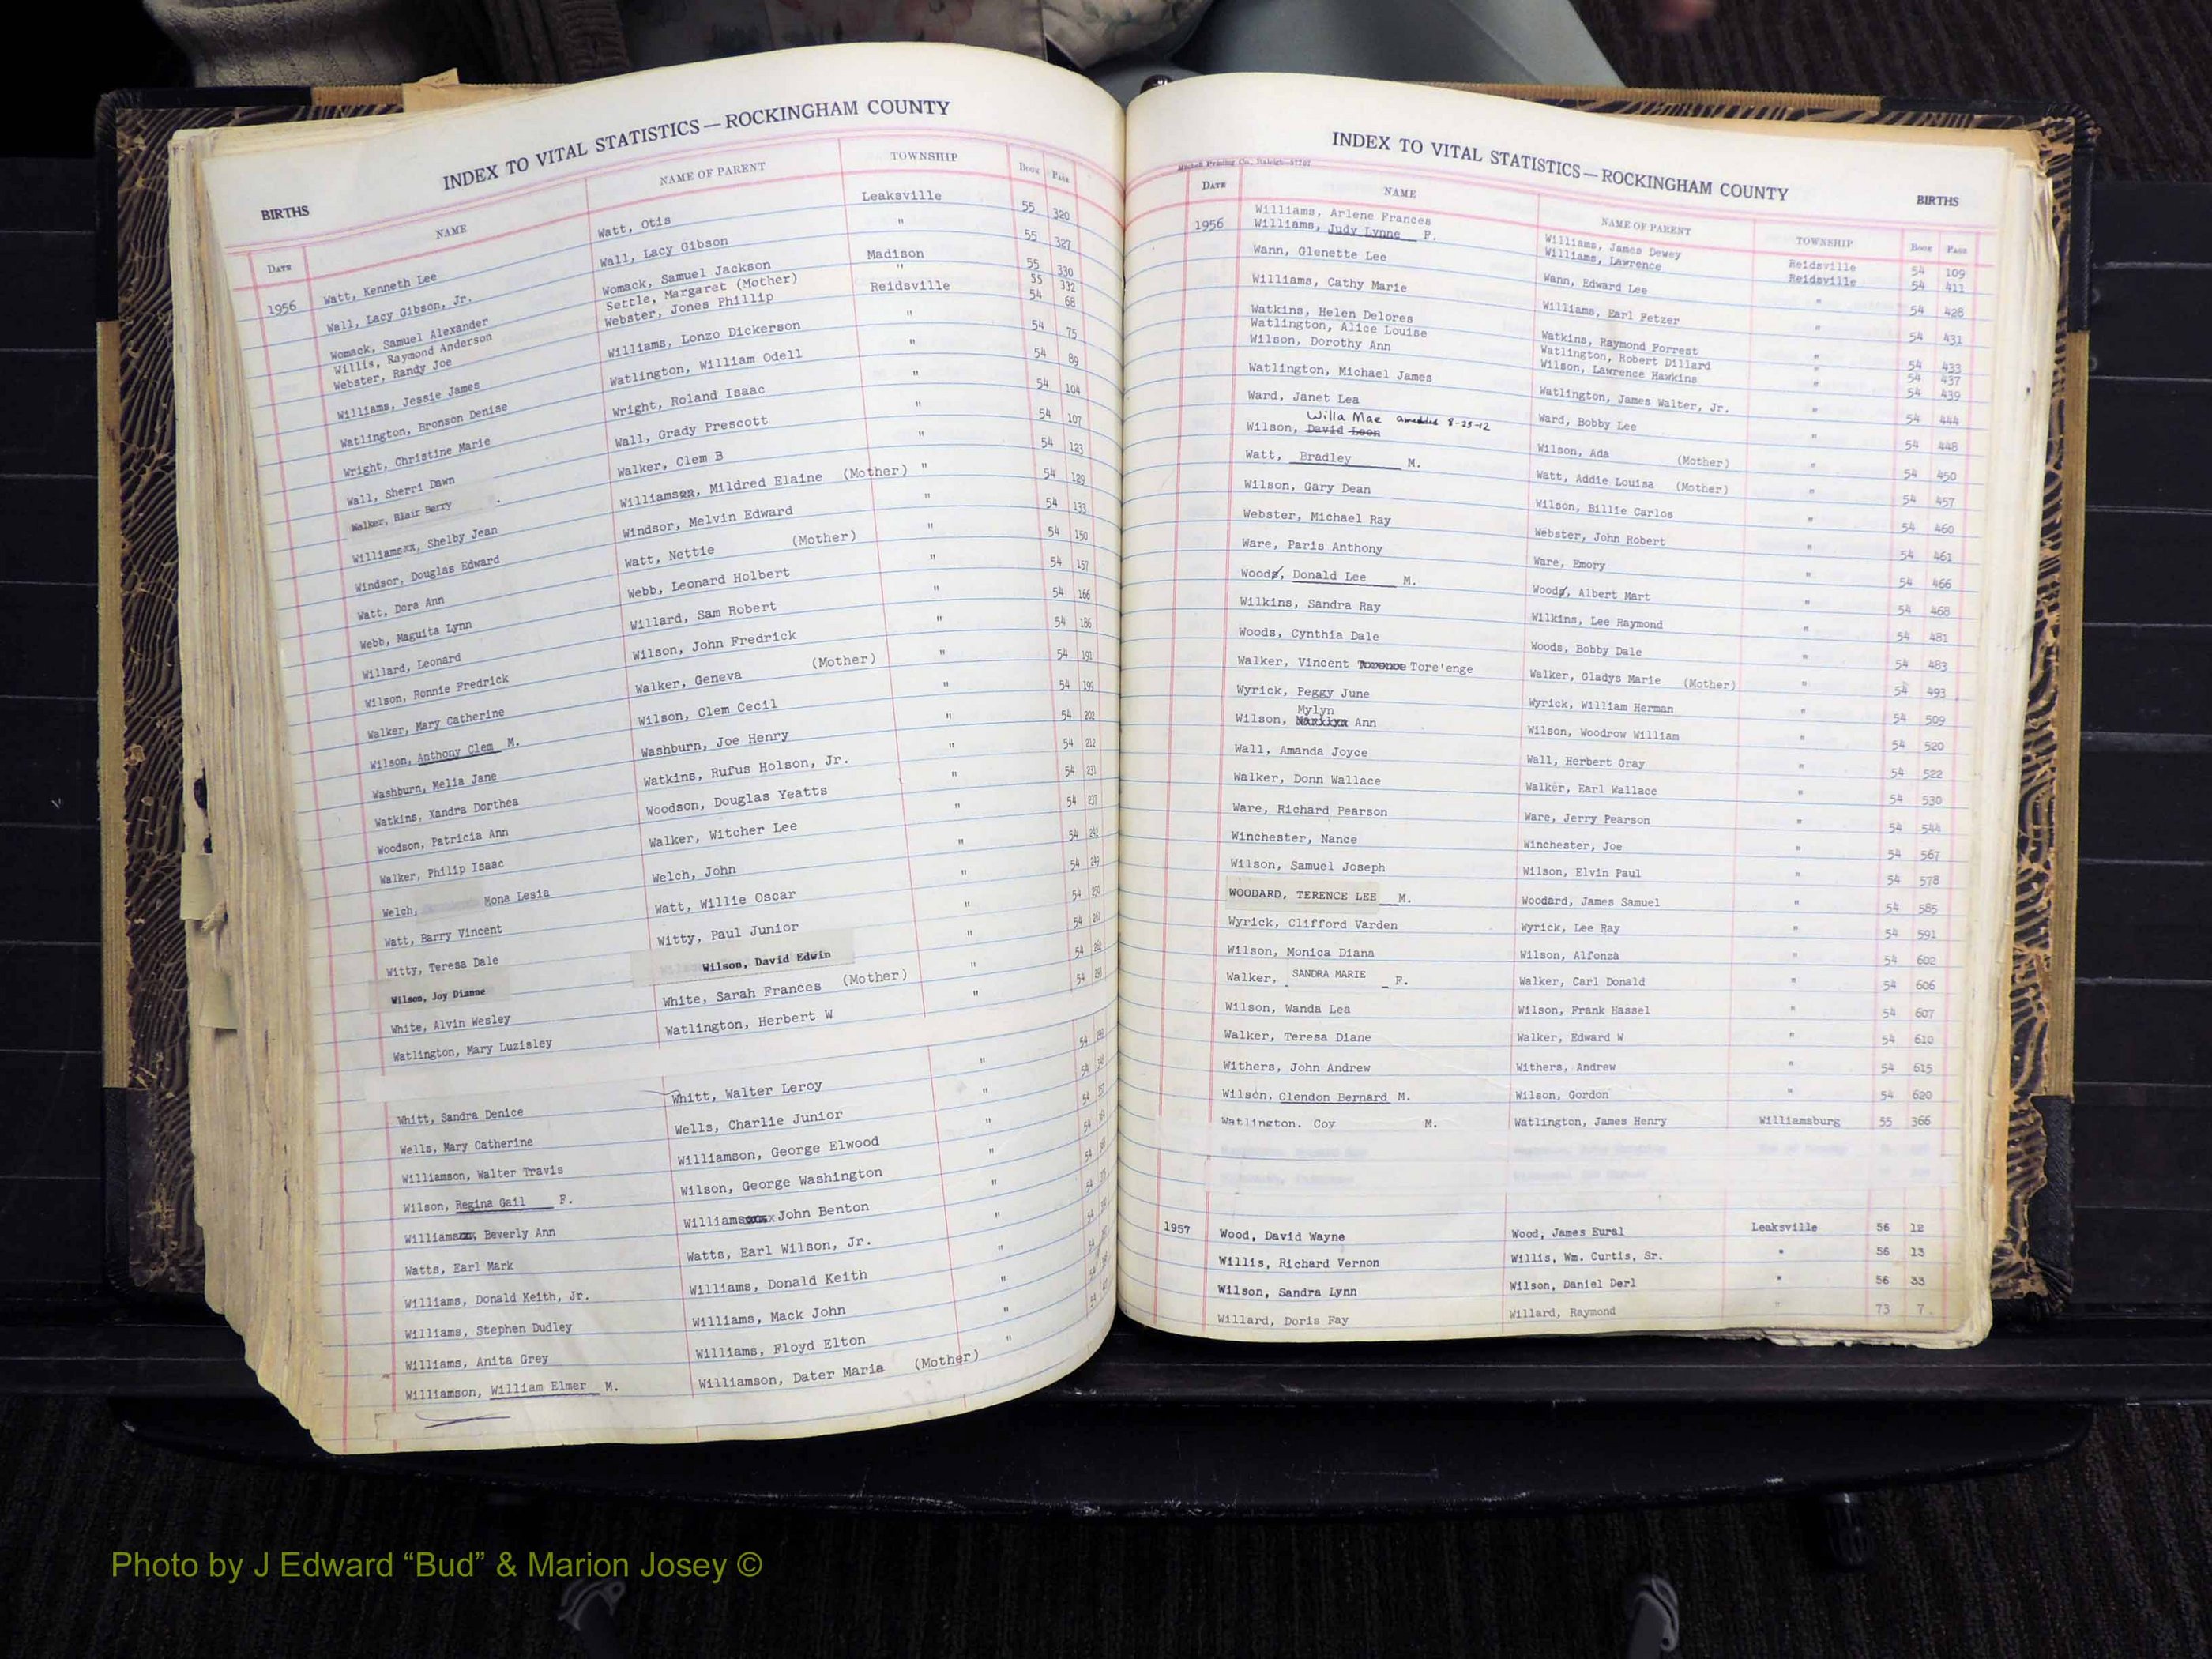 INDEX TO VITAL STATISTICS — ROCKINGHAM COUNTY
BIRTHS
DATE NAME NAME OF PARENT TOWNSHIP BOOK PAGE
1956 Watt, Kenneth Lee Watt, Otis Leaksville 55 320
Wall, Lacy Gibson, Jr. Wall, Lacy Gibson " 55 327
Womack, Samuel Alexander Womack, Samuel Jackson Madison 55 330
Willis, Raymond Anderson Settle, Margaret (Mother) " 55 332
Webster, Randy Joe Webster, Jones Phillip Reidsville 54 68
Williams, Jessie James Williams, Lonzo Dickerson " 54 75
Watlington, Bronson Denise Watlington, William Odell " 54 89
Wright, Christine Marie Wright, Roland Isaac " 54 104
Wall, Sherri Dawn Wall, Grady Prescott " 54 107
Walker, Blair Berry Walker, Clem B " 54 123
Williamsxx, Shelby Jean Williamson, Mildred Elaine (Mother) " 54 129
Windsor, Douglas Edward Windsor, Melvin Edward " 54 133
Watt, Dora Ann Watt, Nettie (Mother) " 54 150
Webb, Maguita Lynn Webb, Leonard Holbert " 54 157
Willard, Leonard Willard, Sam Robert " 54 166
Wilson, Ronnie Fredrick Wilson, John Fredrick " 54 186
Walker, Mary Catherine Walker, Geneva (Mother) " 54 191
Wilson, Anthony Clem M. Wilson, Clem Cecil " 54 199
Washburn, Melia Jane Washburn, Joe Henry " 54 202
Watkins, Xandra Dorthea Watkins, Rufus Holson, Jr. " 54 212
Woodson, Patricia Ann Woodson, Douglas Yeatts " 54 231
Walker, Philip Isaac Walker, Witcher Lee " 54 237
Welch, Mona Lesia Welch, John " 54
Watt, Barry Vincent Watt, Willie Oscar " 54
Witty, Teresa Dale Witty, Paul Junior " 54
Wilson, Joy Dianne Wilson, David Edwin " 54
White, Alvin Wesley White, Sarah Frances (Mother) " 54
Watlington, Mary Luzisley Watlington, Herbert W " 54
Whitt, Sandra Denice Whitt, Walter Leroy " 54
Wells, Mary Catherine Wells, Charlie Junior " 54
Williamson, Walter Travis Williamson, George Elwood " 54
Wilson, Regina Gail F. Wilson, George Washington " 54
Williams, Beverly Ann Williams John Benton " 54
Watts, Earl Mark Watts, Earl Wilson, Jr. " 54
Williams, Donald Keith, Jr. Williams, Donald Keith " 54
Williams, Stephen Dudley Williams, Mack John " 54
Williams, Anita Grey Williams, Floyd Elton " 54
Williamson, William Elmer M. Williamson, Dater Maria (Mother) " 54
INDEX TO VITAL STATISTICS — ROCKINGHAM COUNTY
Mitchell Printing Co., Raleigh
BIRTHS
DATE NAME NAME OF PARENT TOWNSHIP BOOK PAGE
1956 Williams, Arlene Frances Williams, James Dewey Reidsville 54 109
Williams, Judy Lynne F. Williams, Lawrence Reidsville 54 411
Wann, Glenette Lee Wann, Edward Lee " 54 428
Williams, Cathy Marie Williams, Earl Fetzer " 54 431
Watkins, Helen Delores Watkins, Raymond Forrest " 54 433
Watlington, Alice Louise Watlington, Robert Dillard " 54 437
Wilson, Dorothy Ann Wilson, Lawrence Hawkins " 54 439
Watlington, Michael James Watlington, James Walter, Jr. " 54 444
Ward, Janet Lea Ward, Bobby Lee " 54 448
Willa Mae amended 8-23-12
Wilson, David Leon Wilson, Ada (Mother) " 54 450
Watt, Bradley M. Watt, Addie Louisa (Mother) " 54 457
Wilson, Gary Dean Wilson, Billie Carlos " 54 460
Webster, Michael Ray Webster, John Robert " 54 461
Ware, Paris Anthony Ware, Emory " 54 466
Woods, Donald Lee M. Woods, Albert Mart " 54 468
Wilkins, Sandra Ray Wilkins, Lee Raymond " 54 481
Woods, Cynthia Dale Woods, Bobby Dale " 54 483
Walker, Vincent Tore'enge Walker, Gladys Marie (Mother) " 54 493
Wyrick, Peggy June Wyrick, William Herman " 54 509
Mylyn
Wilson, Ann Wilson, Woodrow William " 54 520
Wall, Amanda Joyce Wall, Herbert Gray " 54 522
Walker, Donn Wallace Walker, Earl Wallace " 54 530
Ware, Richard Pearson Ware, Jerry Pearson " 54 544
Winchester, Nance Winchester, Joe " 54 567
Wilson, Samuel Joseph Wilson, Elvin Paul " 54 578
WOODARD, TERENCE LEE M. Woodard, James Samuel " 54 585
Wyrick, Clifford Varden Wyrick, Lee Ray " 54 591
Wilson, Monica Diana Wilson, Alfonza " 54 602
Walker, SANDRA MARIE F. Walker, Carl Donald " 54 606
Wilson, Wanda Lea Wilson, Frank Hassel " 54 607
Walker, Teresa Diane Walker, Edward W " 54 610
Withers, John Andrew Withers, Andrew " 54 615
Wilson, Clendon Bernard M. Wilson, Gordon " 54 620
Watlington. Coy M. Watlington, James Henry Williamsburg 55 366
1957 Wood, David Wayne Wood, James Eural Leaksville 56 12
Willis, Richard Vernon Willis, Wm. Curtis, Sr. " 56 13
Wilson, Sandra Lynn Wilson, Daniel Derl " 56 33
Willard, Doris Fay Willard, Raymond " 73 7
Photo by J Edward “Bud” & Marion Josey ©